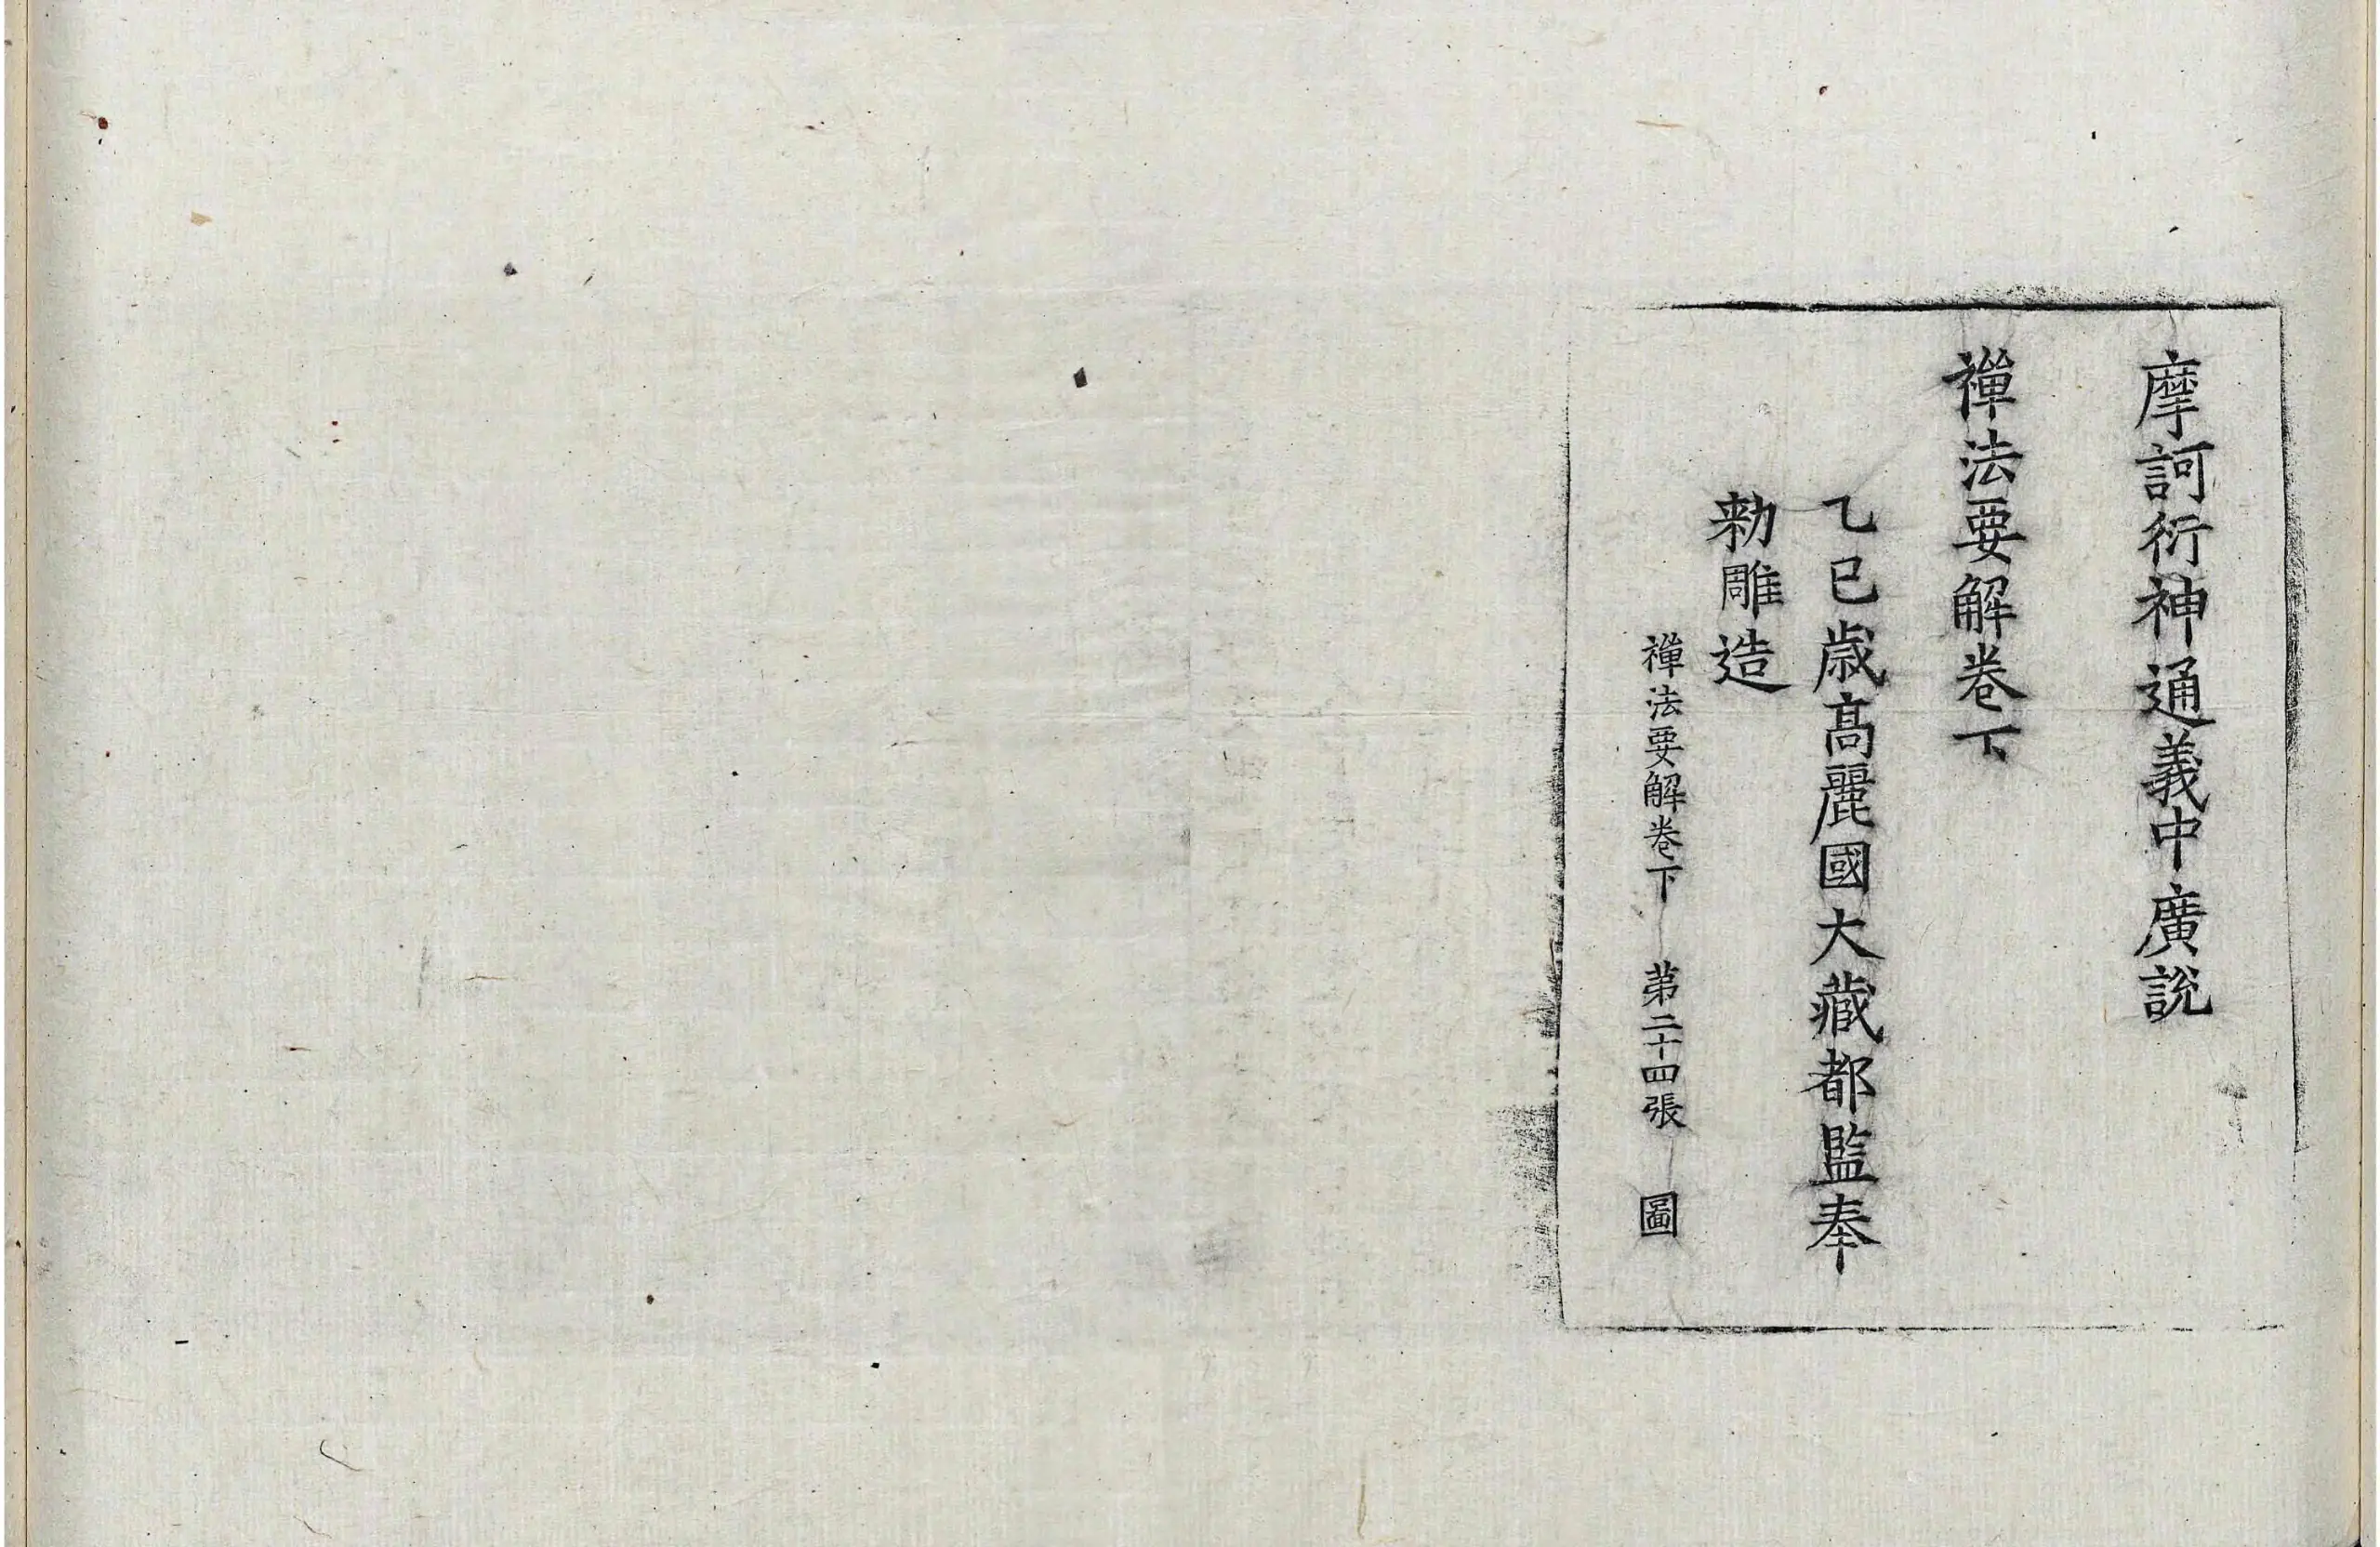 摩訶衍神通義中廣說
禪法要解卷下
乙巳歲高麗國大藏都監奉
勅雕造
禪法要解卷下　第二十四張　圖